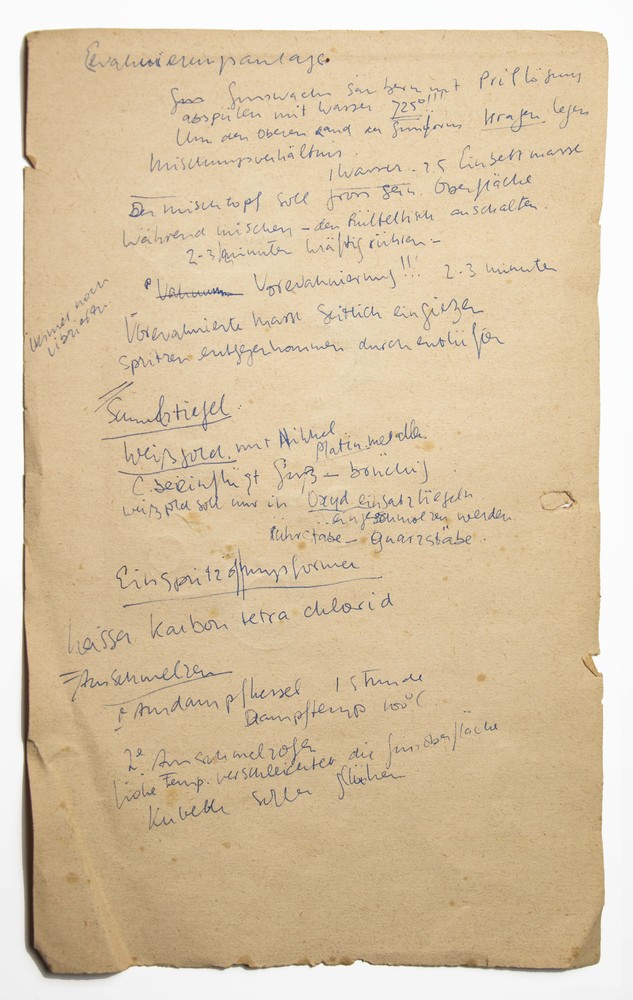 Evakuierungsanlage.
Gusswachs säubern mit Prillösung
abspülen mit Wasser 725°!!!
Um den oberen Rand der Gussform Kragen legen
Mischungsverhältnis.
1 Wasser - 2.5 Einbettmasse
Der mischtopf soll gross sein Oberfläche
Während mischen - den Rütteltisch anschalten.
2-3 minuten kräftig rühren -
Vorevakuierung!!! 2-3 minuten
immer noch
vibrieren
Vorevakuierte masse seitlich eingiessen
spritzen entgegenkommen durch entlüften
Schmelztiegel.
Weißgold mit Nikkel
Platin-metallen
beeinflugt Guß - brüchig
weißgold soll nur in Oxyd einsatztiegeln
eingeschmolzen werden.
Rührstäbe - Quarzstäbe.
Einspritzöffnungsformer
heisser Karbon tetra chlorid
Ausschmelzen
1e Ausdampfkessel 1 Stunde
Dampftemp 100°C
2e Ausschmelzofen
hohe Temp. verschlechter die Gussoberfläche
Küvette soll glühen